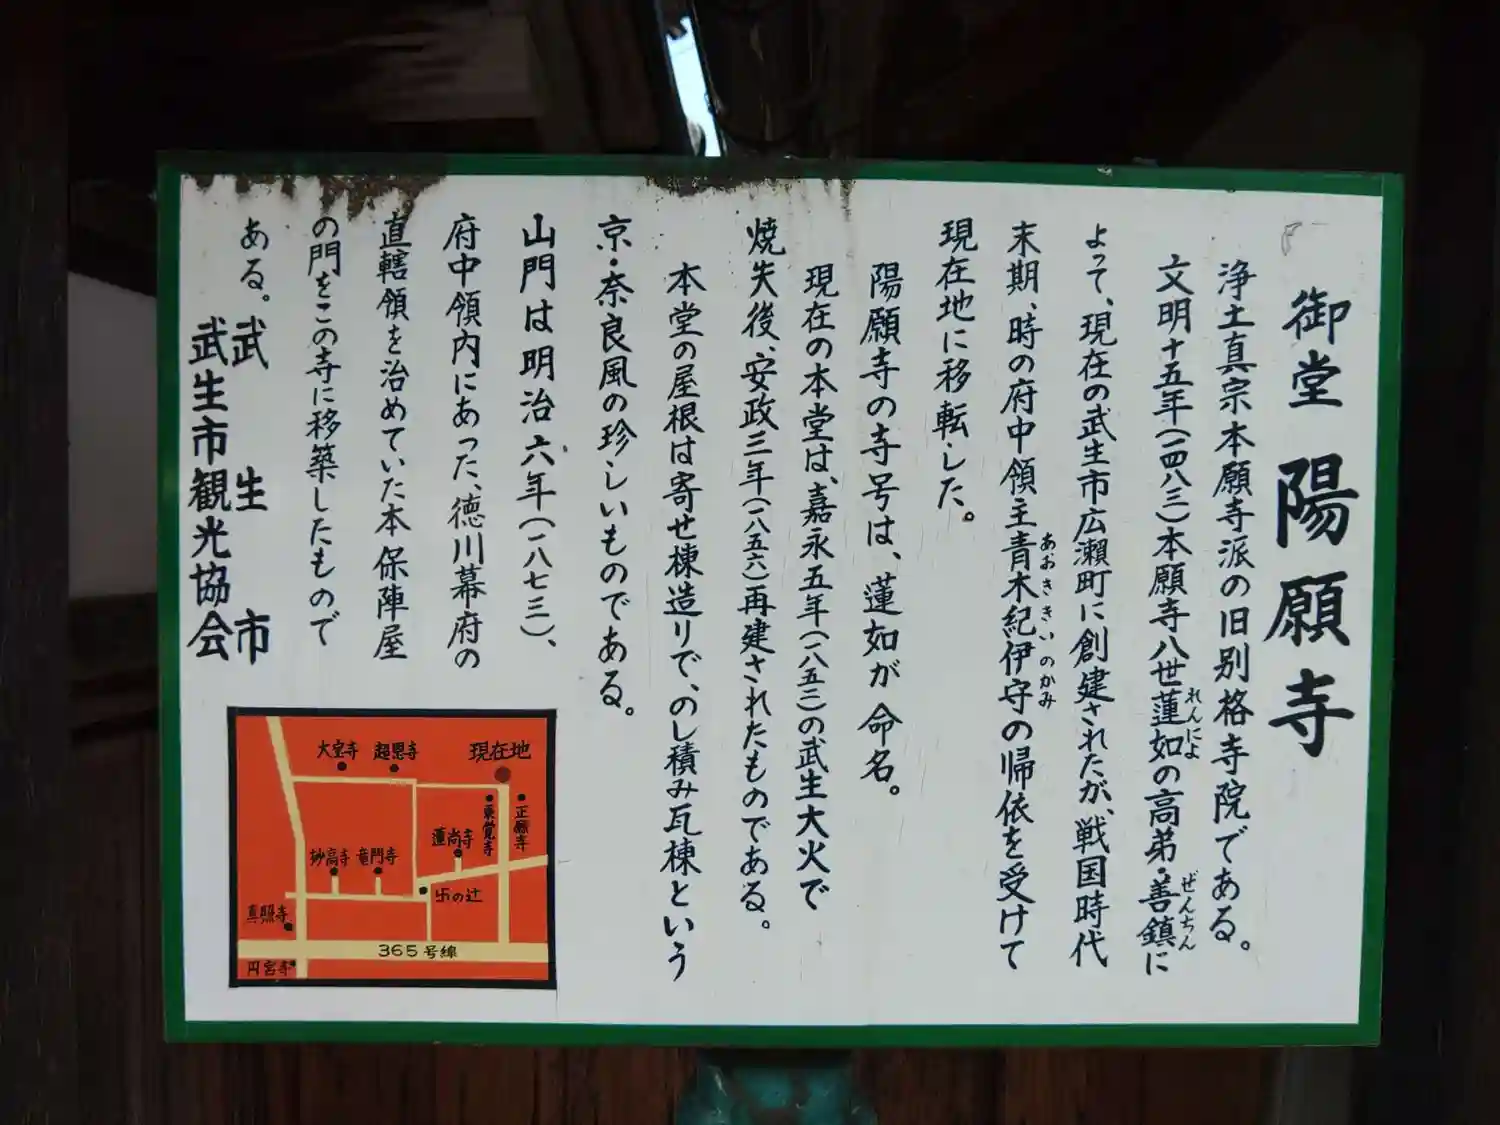 御堂 陽願寺
浄土真宗本願寺派の旧別格寺院である。
文明十五年(一四八三)本願寺八世蓮如の高弟・善鎮に
れんにょ
ぜんちん
よって、現在の武生市広瀬町に創建されたが、戦国時代
末期、時の府中領主青木紀伊守の帰依を受けて
あおききいのかみ
現在地に移転した。
陽願寺の寺号は、蓮如が命名。
現在の本堂は、嘉永五年(一八五二)の武生大火で
焼失後、安政三年(一八五六)再建されたものである。
本堂の屋根は寄せ棟造りで、のし積み瓦棟という
京・奈良風の珍しいものである。
山門は明治六年(一八七三)、
府中領内にあった、徳川幕府の
直轄領を治めていた本保陣屋
の門をこの寺に移築したもので
ある。
武生市
武生市観光協会
大宝寺
超恩寺
現在地
正願寺
東覚寺
蓮尚寺
妙高寺
竜門寺
卍の辻
真照寺
365号線
円宮寺